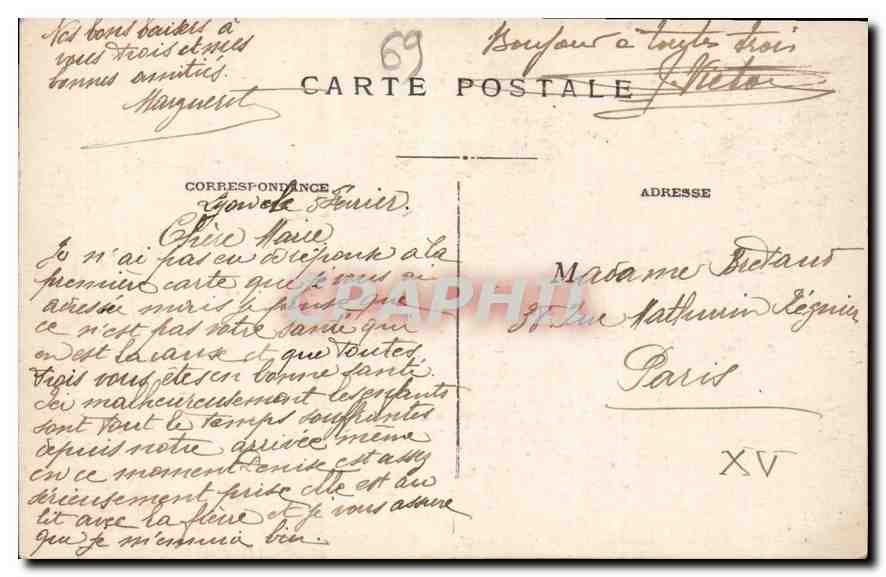 Nos bons baisers à
vous trois et mes
bonnes amitiés.
Marguerite
69
Bonjour à toutes trois
CARTE POSTALE
CORRESPONDANCE
ADRESSE
Lyon le 5 Février.
Chère Marie
Je n'ai pas eu de réponse à la
première carte que je vous ai
adressée mais je pense que
ce n'est pas votre santé qui
en est la cause et que toutes
trois vous êtes en bonne santé.
Ici malheureusement les enfants
sont tout le temps souffrantes
depuis notre arrivée même
en ce moment Denise est assez
sérieusement prise elle est au
lit avec la fièvre et je vous assure
que je m'ennuie bien.
Madame Bretaud
Rue Mathurin Régnier
Paris
XV
CPAPHIL